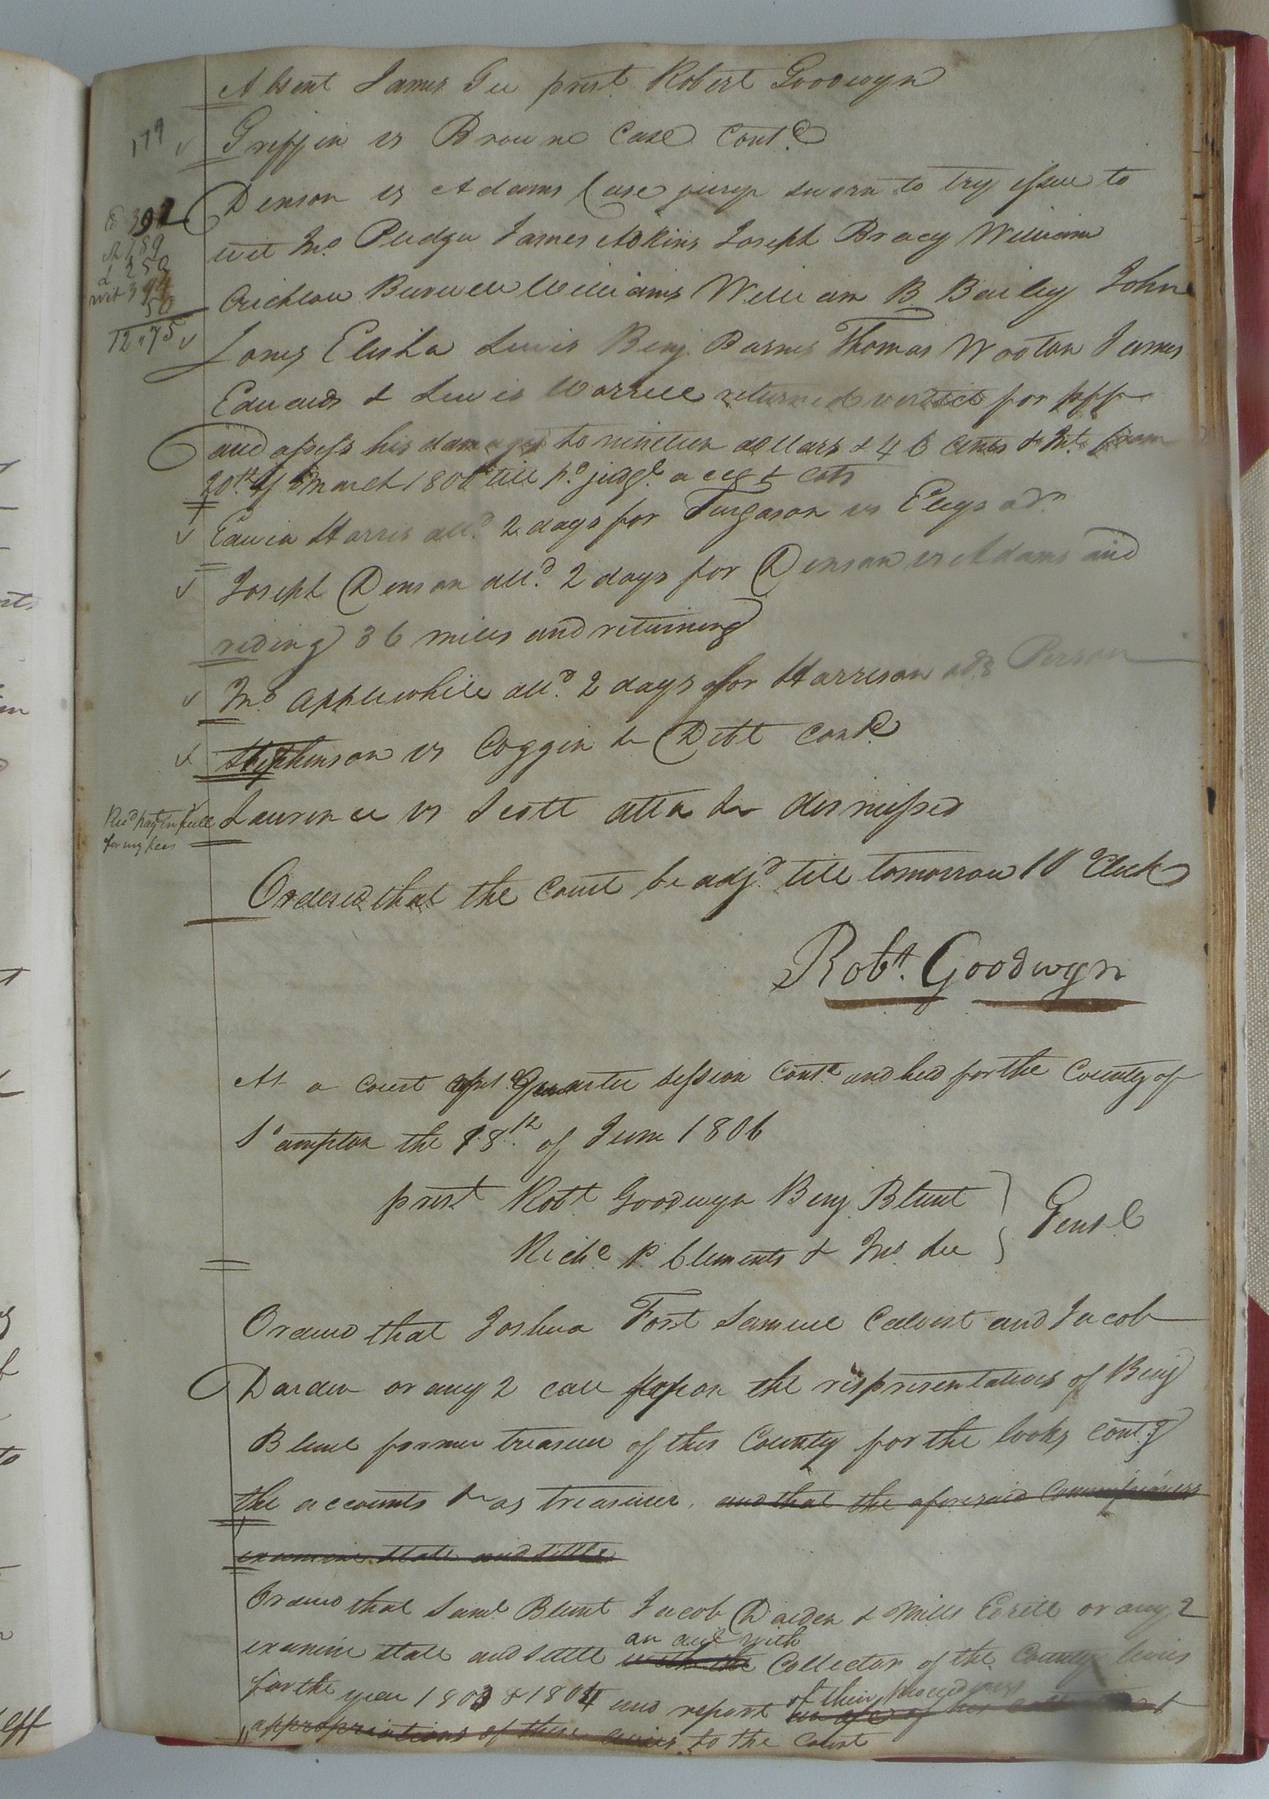 Absent James Gee prest. Robert Goodwyn
179
Griffin vs Browne Case Contd
Denson vs Adams Case jury sworn to try issue to
wit Jno Pledger James Adkins Joseph Bracy William
Crichlow Burwell Williams William B Bailey John
Jones Elisha Lewis Benj. Barnes Thomas Wootan James
Edwards & Lewis Worrell returned verdict for plff
and assess his damages to nineteen dollars & 46 cents & Int. from
20th of March 1806 till pd. judgt. accg & cots
12.75
Edwin Harris alld. 2 days for Furgason vs adr
Joseph Denson alld. 2 days for Denson vs Adams and
riding 36 miles and returning
Jno. Applewhite alld. 2 days for Harrison ads Person
Stephenson vs Coggin &c Debt Contd
Recd. pay in full
for my fees
Laurence vs Scott atta &c dismissed
Ordered that the Court be adjd. till tomorrow 10 oClock
Robt. Goodwyn
At a Court Quarter Session Contd and held for the County of
So ampton the 18th of June 1806
prest Robt Goodwyn Benj Blunt
Richd P. Clements & Jno. Gee
Gent
Ordered that Joshua Fort Samuel Calvert and Jacob
Darden or any 2 call upon the representatives of Benj
Blunt former treasurer of this County for the books contg
the accounts &c as treasurer. and that the aforesaid Commissioners
examine state and settle
Ordered that Saml Blunt Jacob Darden & Mills Ezell or any 2
an acct with
examine state and settle with the Collector of the County levies
of their proceedings
for the year 1803 & 1804 and report
appropriations of these levies to the Court